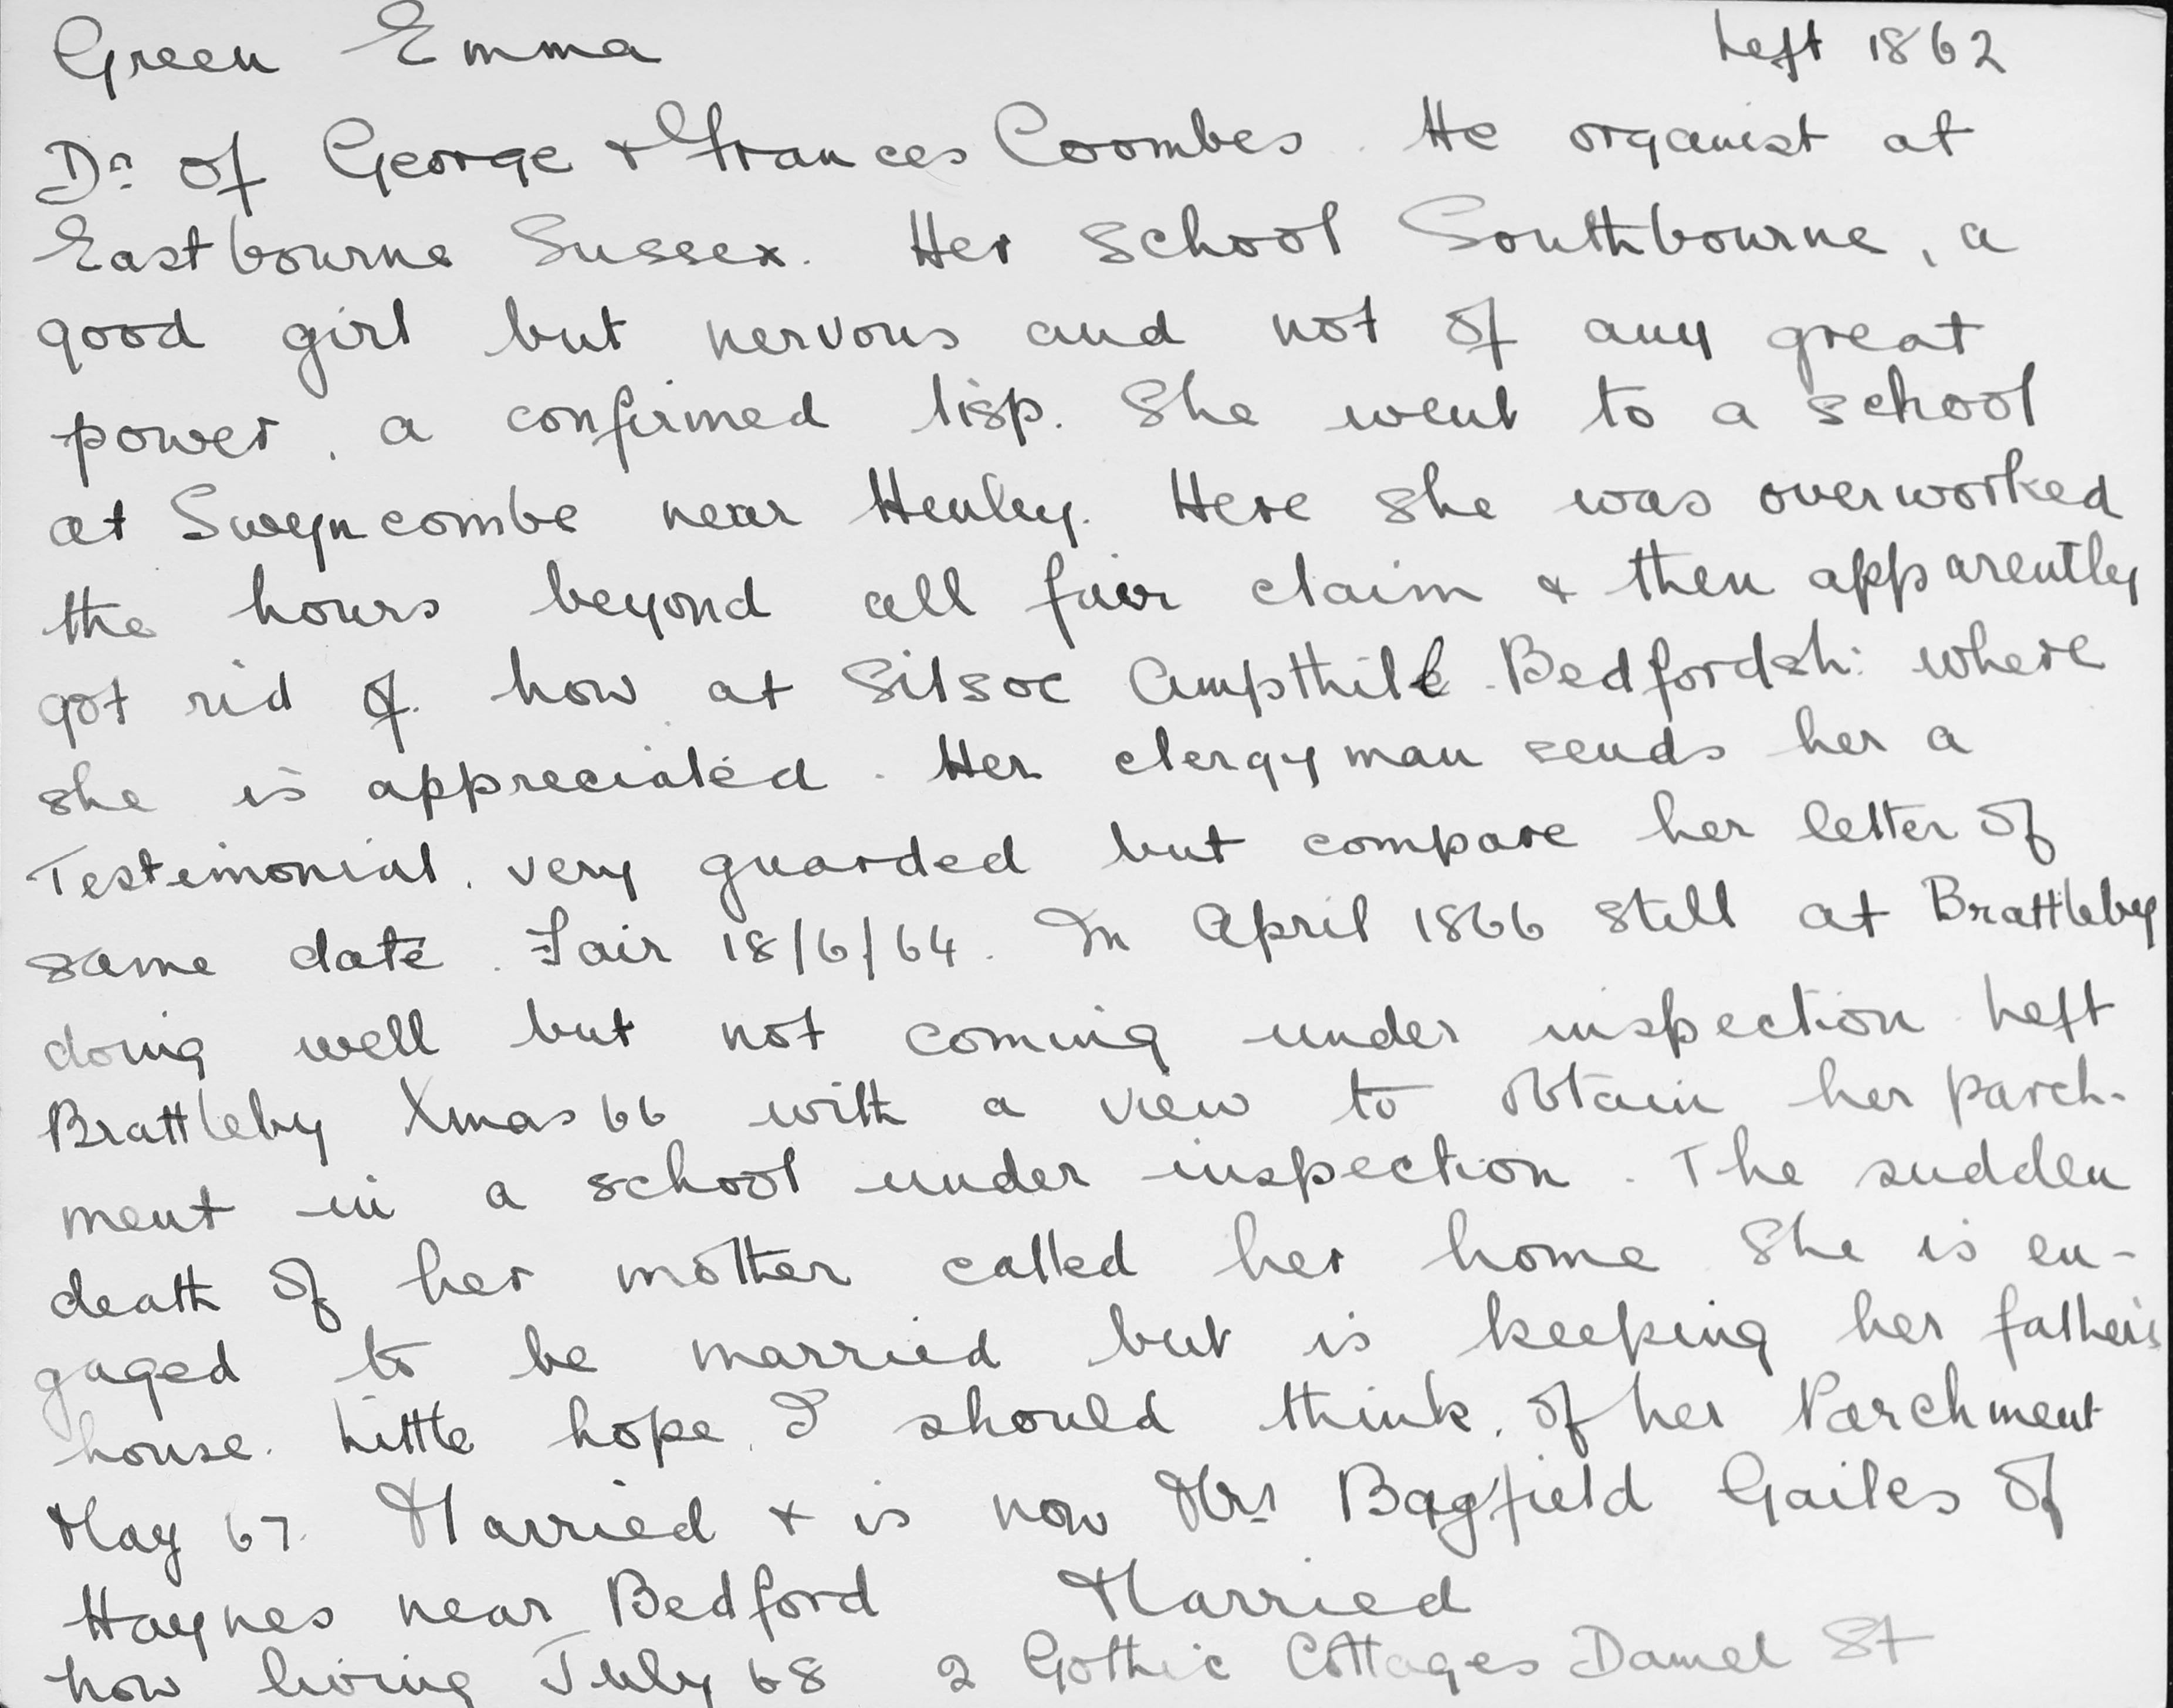 Green Emma Left 1862
Dr. of George & Frances Coombes. He organist at
Eastbourne Sussex. Her school Southbourne, a
good girl but nervous and not of any great
power, a confirmed lisp. She went to a school
at Sweyncombe near Henley. Here she was overworked
the hours beyond all fair claim & then apparently
got rid of. Now at Silsoe Ampthill Bedfordsh: where
she is appreciated. Her clergyman sends her a
Testimonial, very guarded but compare her letter of
same date. Fair 18/6/64. In April 1866 still at Brattleby
doing well but not coming under inspection Left
Brattleby Xmas 66 with a view to obtain her parch-
ment in a school under inspection. The sudden
death of her mother called her home She is en-
gaged to be married but is keeping her father's
house. Little hope, I should think, of her Parchment
May 67. Married & is now Mrs Bagfield Gailes of
Haynes near Bedford Married
Now living July 68 2 Gothic Cottages Damel St